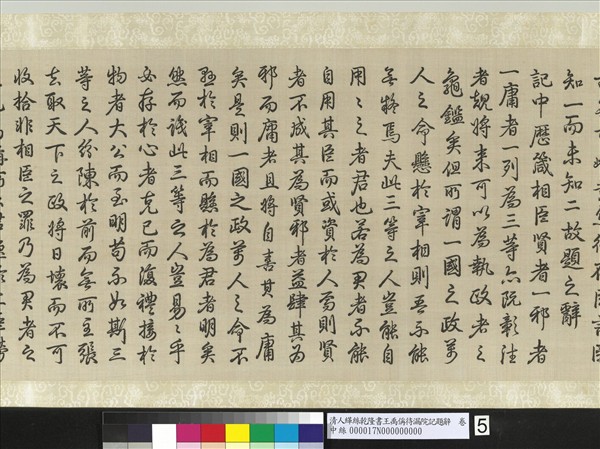 知一而未知二故題之辭
記中歷箴相臣賢者一邪者
一庸者一列為三等亦既彰往
者規將来可以為執政者之
龜鑑矣但所謂一國之政萬
人之命懸於宰相則吾不能
無疑焉夫此三等之人豈能自
用〻之者君也若為君者不能
自用其臣而或資於人焉則賢
者不成其為賢邪者益肆其為
邪而庸者且將自喜其為庸
矣是則一國之政萬人之命不
懸於宰相而懸於為君者明矣
然而識此三等之人豈易〻乎
必存於心者克己而復禮接於
物者大公而至明苟不如斯三
等之人紛陳於前而無所主張
去取天下之政將日壞而不可
收拾非相臣之罪乃為君者之
清人緙絲乾隆書王禹偁待漏院記題辭 卷
中絲 000017N000000000
5